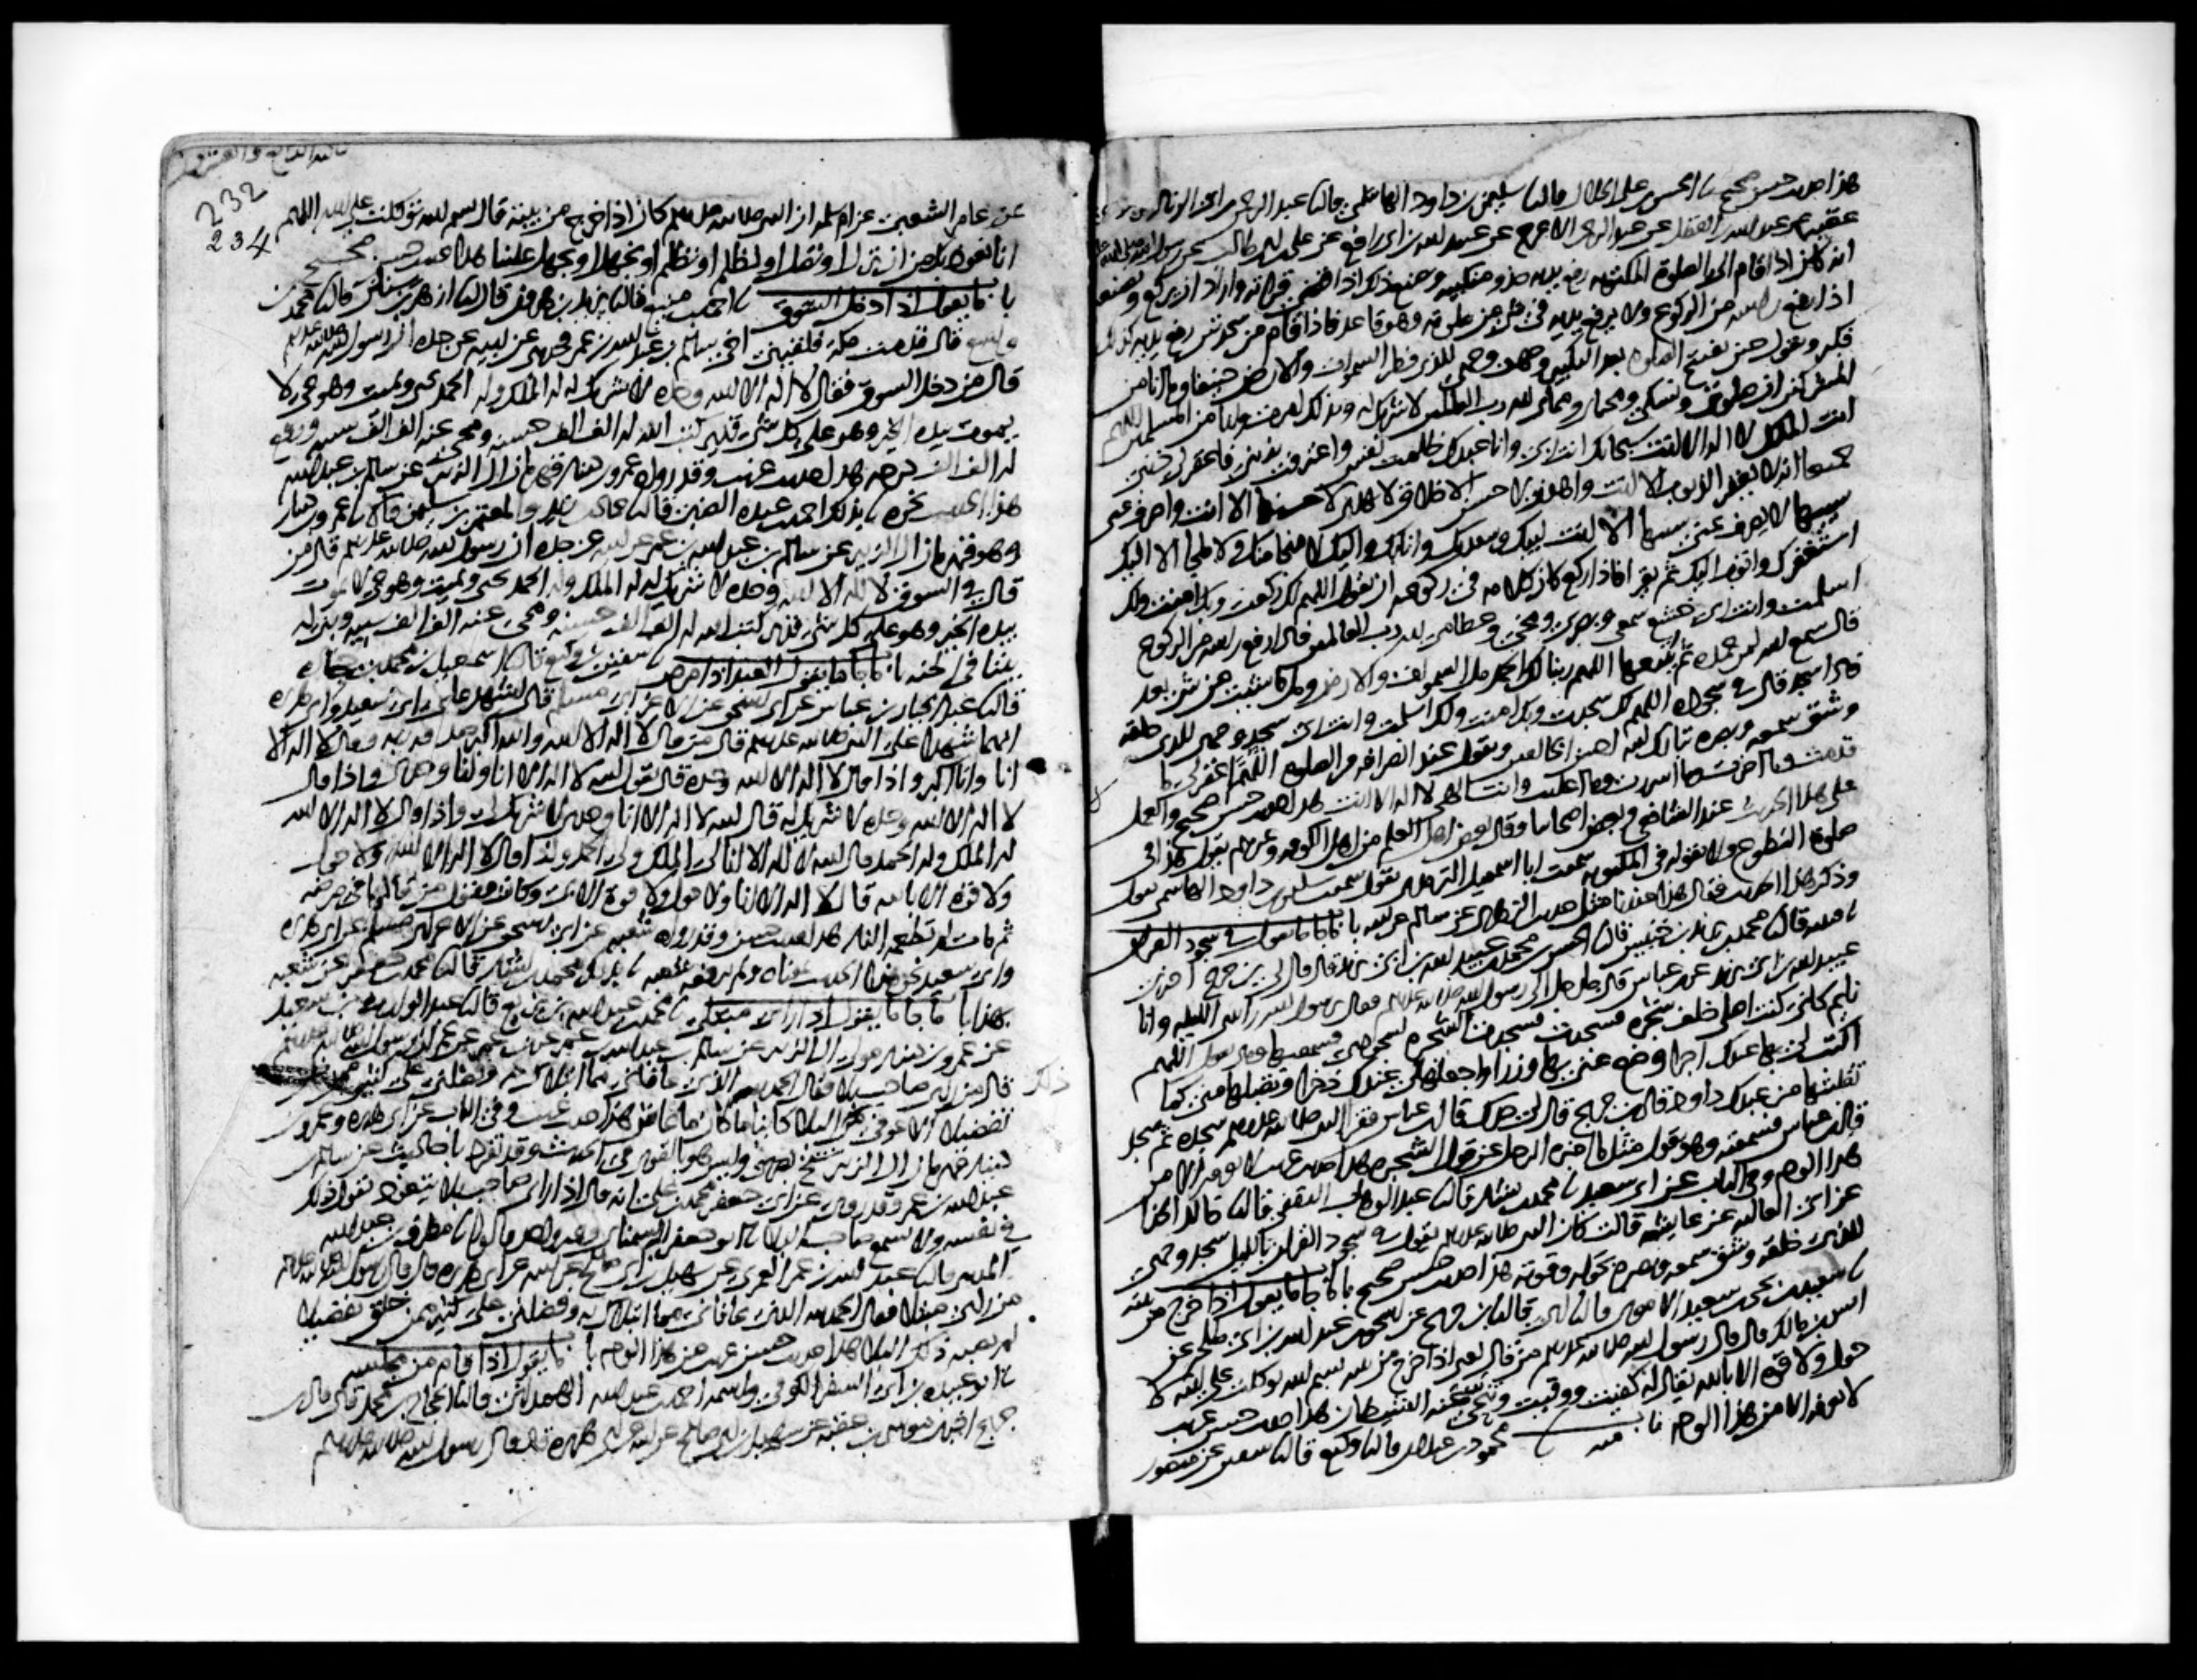 هذا حديث حسن صحيح نا الحسن بن علي الخلال قال نا سليمن بن داود الهاشمي قال نا عبد الرحمن بن ابي الزناد
عبد الله بن الفضل عن عبد الرحمن الاعرج عن عبيد الله بن ابي رافع عن علي بن ابي طالب عن رسول الله
انه كان اذا قام الى الصلوة المكتوبه رفع يديه حذو منكبيه ويصنع ذلك اذا قضى قراته واراد ان يركع ويصنعه
اذا رفع راسه من الركوع ولا يرفع يديه في شي من صلوته وهو قاعد فاذا قام من سجدتين رفع يديه كذلك
فكبر ويقول حين يفتتح الصلوة بعد التكبير وجهت وجهي للذي فطر السموات والارض حنيفا وما انا من
المشركين ان صلوتي ونسكي ومحياي ومماتي لله رب العالمين لا شريك له وبذلك امرت وانا من المسلمين اللهم
انت الملك لا اله الا انت سبحانك انت ربي وانا عبدك ظلمت نفسي واعترفت بذنبي فاغفر لي ذنبي
جميعا انه لا يغفر الذنوب الا انت واهدني لاحسن الاخلاق لا يهدي لاحسنها الا انت واصرف عني
سيئها لا يصرف عني سيئها الا انت لبيك وسعديك وانا بك واليك لا منجا منك ولا ملجا الا اليك
استغفرك واتوب اليك ثم يقرا فاذا ركع كان كلامه في ركوعه ان يقول اللهم لك ركعت وبك امنت ولك
اسلمت وانت ربي خشع سمعي وبصري ومخي وعظامي لله رب العالمين فاذا رفع راسه من الركوع
قال سمع الله لمن حمده ثم يتبعها اللهم ربنا لك الحمد ملا السموات والارض وملا ما شئت من شي بعد
فاذا سجد قال في سجوده اللهم لك سجدت وبك امنت ولك اسلمت وانت ربي سجد وجهي للذي خلقه
وشق سمعه وبصره تبارك الله احسن الخالقين ويقول عند انصرافه من الصلوة اللهم اغفر لي ما
قدمت وما اخرت وما اسررت وما اعلنت وانت الهي لا اله الا انت هذا حديث حسن صحيح والعمل
على هذا الحديث عند الشافعي وبعض اصحابنا وقال بعض اهل العلم من اهل الكوفه وغيرهم يقول هذا في
صلوة التطوع ولا يقوله في المكتوبه سمعت ابا اسمعيل الترمذي يقول سمعت سليمن بن داود الهاشمي يقول
وذكر هذا الحديث فقال هذا عندنا مثل حديث الزهري عن سالم عن ابيه باب ما جا ما يقول في سجود القران
نا قتيبه قال نا محمد بن يزيد بن خنيس قال نا الحسن بن محمد بن عبيد الله بن ابي يزيد قال قال لي ابن جريج اخبرني
عبيد الله بن ابي يزيد عن ابن عباس قال جا رجل الى رسول الله صلى الله عليه وسلم فقال يا رسول الله رايتني الليله وانا
نايم كاني كنت اصلي خلف شجره فسجدت فسجدت الشجره لسجودي فسمعتها وهي تقول اللهم
اكتب لي بها عندك اجرا وضع عني بها وزرا واجعلها لي عندك ذخرا وتقبلها مني كما
تقبلتها من عبدك داود قال ابن جريج قال لي جدك قال ابن عباس فقرا النبي صلى الله عليه وسلم سجدة ثم سجد
قال ابن عباس فسمعته وهو يقول مثل ما اخبره الرجل عن قول الشجره هذا حديث غريب لا نعرفه الا من
هذا الوجه وفي الباب عن ابي سعيد نا محمد بن بشار قال نا عبد الوهاب الثقفي قال نا خالد الحذا
عن ابي العاليه عن عايشه قالت كان النبي صلى الله عليه وسلم يقول في سجود القران بالليل سجد وجهي
للذي خلقه وشق سمعه وبصره بحوله وقوته هذا حديث حسن صحيح باب ما جا ما يقول اذا خرج من بيته
نا سعيد بن يحيى بن سعيد الاموي قال نا ابي قال نا ابن جريج عن اسحق بن عبد الله بن ابي طلحه عن
انس بن مالك قال قال رسول الله صلى الله عليه وسلم من قال يعني اذا خرج من بيته بسم الله توكلت على الله لا
حول ولا قوة الا بالله يقال له كفيت ووقيت وتنحى عنه الشيطان هذا حديث حسن غريب
لا نعرفه الا من هذا الوجه باب منه نا محمود بن غيلان قال نا وكيع قال نا سفين عن منصور
232
234
عن عامر الشعبي عن ام سلمه ان النبي صلى الله عليه وسلم كان اذا خرج من بيته قال بسم الله توكلت على الله اللهم
انا نعوذ بك من ان نزل او نضل او نظلم او نظلم او نجهل او يجهل علينا هذا حديث حسن صحيح
باب ما يقول اذا دخل السوق نا احمد بن منيع قال نا يزيد بن هرون قال نا ازهر بن سنان قال نا محمد بن
واسع قال قدمت مكة فلقيني اخي سالم بن عبد الله بن عمر فحدثني عن ابيه عن جده ان رسول الله صلى الله عليه وسلم
قال من دخل السوق فقال لا اله الا الله وحده لا شريك له له الملك وله الحمد يحيي ويميت وهو حي لا
يموت بيده الخير وهو على كل شي قدير كتب الله له الف الف حسنه ومحى عنه الف الف سيئه ورفع
له الف الف درجه هذا حديث غريب وقد رواه عمرو بن دينار قهرمان ال الزبير عن سالم بن عبد الله
هذا الحديث نحوه نا بذلك احمد بن عبده الضبي قال نا حماد بن زيد والمعتمر بن سليمن قالا نا عمرو بن دينار
وهو قهرمان ال الزبير عن سالم بن عبد الله بن عمر عن ابيه عن جده ان رسول الله صلى الله عليه وسلم قال من
قال في السوق لا اله الا الله وحده لا شريك له له الملك وله الحمد يحيي ويميت وهو حي لا يموت
بيده الخير وهو على كل شي قدير كتب الله له الف الف حسنه ومحى عنه الف الف سيئه وبنى له
بيتا في الجنه باب ما جا ما يقول العبد اذا مرض نا سفين بن وكيع قال نا اسمعيل بن محمد بن جحاده
قال نا عبد الجبار بن عباس عن ابي اسحق عن الاغر ابي مسلم قال اشهد على ابي سعيد وابي هريره
انهما شهدا على النبي صلى الله عليه وسلم قال من قال لا اله الا الله والله اكبر صدقه ربه وقال لا اله الا
انا وانا اكبر واذا قال لا اله الا الله وحده قال يقول الله لا اله الا انا وانا وحدي واذا قال
لا اله الا الله وحده لا شريك له قال الله لا اله الا انا وحدي لا شريك لي واذا قال لا اله الا الله
له الملك وله الحمد قال الله لا اله الا انا لي الملك ولي الحمد واذا قال لا اله الا الله ولا حول
ولا قوة الا بالله قال لا اله الا انا ولا حول ولا قوة الا بي وكان يقول من قالها في مرضه
ثم مات لم تطعمه النار هذا حديث حسن وقد رواه شعبه عن ابي اسحق عن الاغر ابي مسلم عن ابي هريره
وابي سعيد نحو هذا الحديث بمعناه ولم يرفعه شعبه نا بذلك محمد بن بشار قال نا محمد بن جعفر عن شعبه
بهذا باب ما جا ما يقول اذا راى مبتلى نا محمد بن عبد الله بن بزيع قال نا عبد الوارث بن سعيد
عن عمرو بن دينار مولى ال الزبير عن سالم بن عبد الله بن عمر عن ابن عمر عن عمر ان رسول الله صلى الله عليه وسلم
قال من راى صاحب بلا فقال الحمد لله الذي عافاني مما ابتلاك به وفضلني على كثير ممن خلق
تفضيلا الا عوفي من ذلك البلا كاينا ما كان ما عاش هذا حديث غريب وفي الباب عن ابي هريره وعمرو بن
دينار قهرمان ال الزبير شيخ بصري وليس هو بالقوي في الحديث وقد تفرد باحاديث عن سالم بن
عبد الله بن عمر وقد روي عن ابي جعفر محمد بن علي انه قال اذا راى صاحب بلا يتعوذ يقول ذلك
في نفسه ولا يسمع صاحب البلا نا ابو جعفر السمناني وغير واحد قالوا نا مطرف بن عبد الله
المديني قال نا عبد الله بن عمر العمري عن سهيل بن ابي صالح عن ابيه عن ابي هريره قال قال رسول الله صلى الله عليه وسلم
من راى مبتلا فقال الحمد لله الذي عافاني مما ابتلاك به وفضلني على كثير ممن خلق تفضيلا
لم يصبه ذلك البلا هذا حديث حسن غريب من هذا الوجه باب ما يقول اذا قام من مجلسه
نا ابو عبيده بن ابي السفر الكوفي واسمه احمد بن عبد الله الهمداني قال نا حجاج بن محمد قال قال ابن
جريج اخبرني موسى بن عقبه عن سهيل بن ابي صالح عن ابيه عن ابي هريره قال قال رسول الله صلى الله عليه وسلم